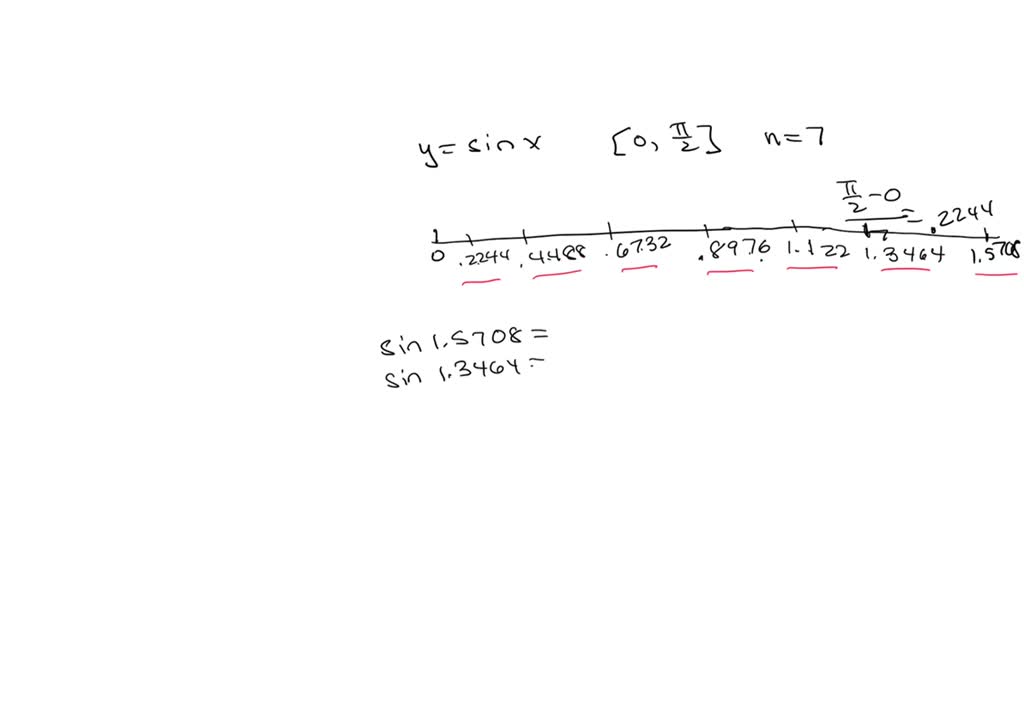 y = sin x [0, π/2] n = 7
(π/2 - 0)/7 = .2244
0 .2244 .4488 .6732 .8976 1.122 1.3464 1.5708
sin 1.5708 =
sin 1.3464 =